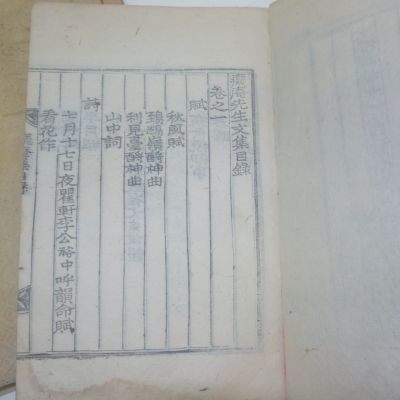 齋先生文集目録
卷之一
賦
秋風賦
鵄鴞嶺酹神曲
利見臺酹神曲
山中詞
詩
七月十七日夜瞿軒李公裕中呼韻命賦
看花作